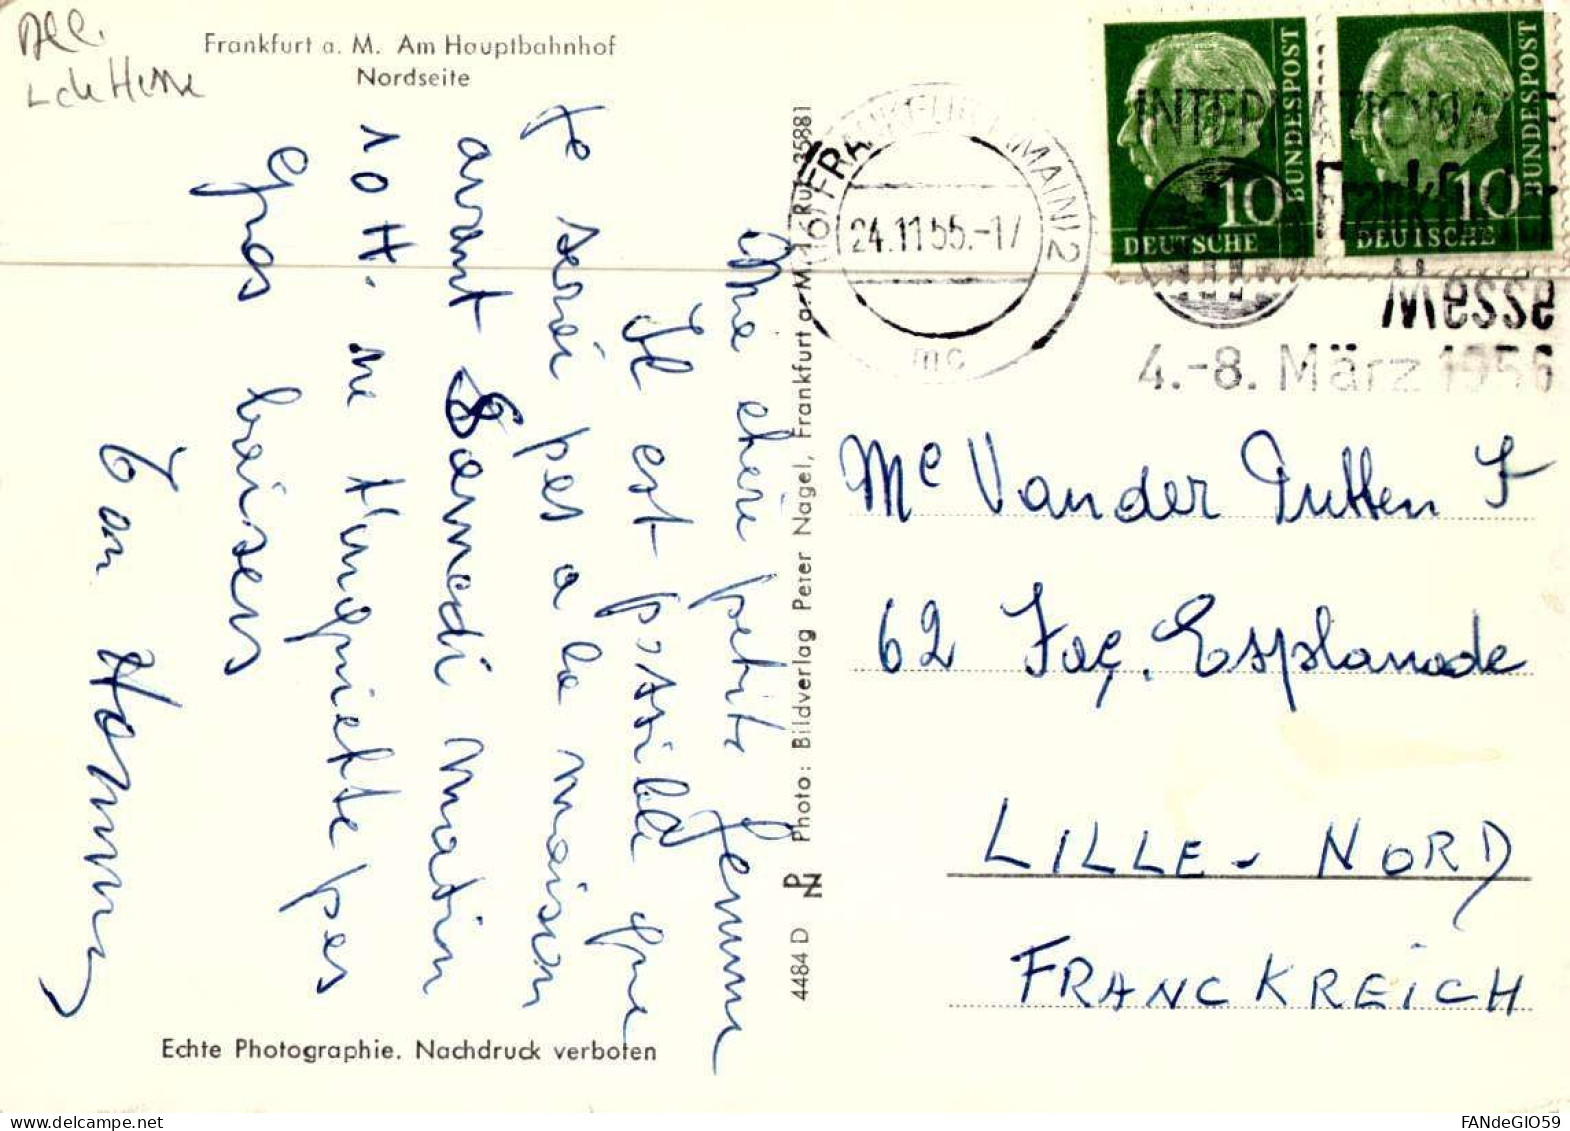 All.
L de Hesse
Frankfurt a. M. Am Hauptbahnhof
Nordseite
Ma chère petite femme
Il est possible que
je serai pas a la maison
avant Samedi matin
10 H. ne t'inquiette pas
Gros baisers
Ton
Photo: Bildverlag Peter Nagel, Frankfurt a. M. 1, Ruf 35881
4484 D
PN
FRANKFURT (MAIN) 2
24.11.55.-17
mc
BUNDESPOST
10
DEUTSCHE
BUNDESPOST
10
DEUTSCHE
INTERNATIONALE
Frankfurter
Messe
4.-8. März 1956
Me Van der Putten F
62 Faç. Esplanade
LILLE - NORD
FRANCKREICH
Echte Photographie. Nachdruck verboten
FANdeGIO59